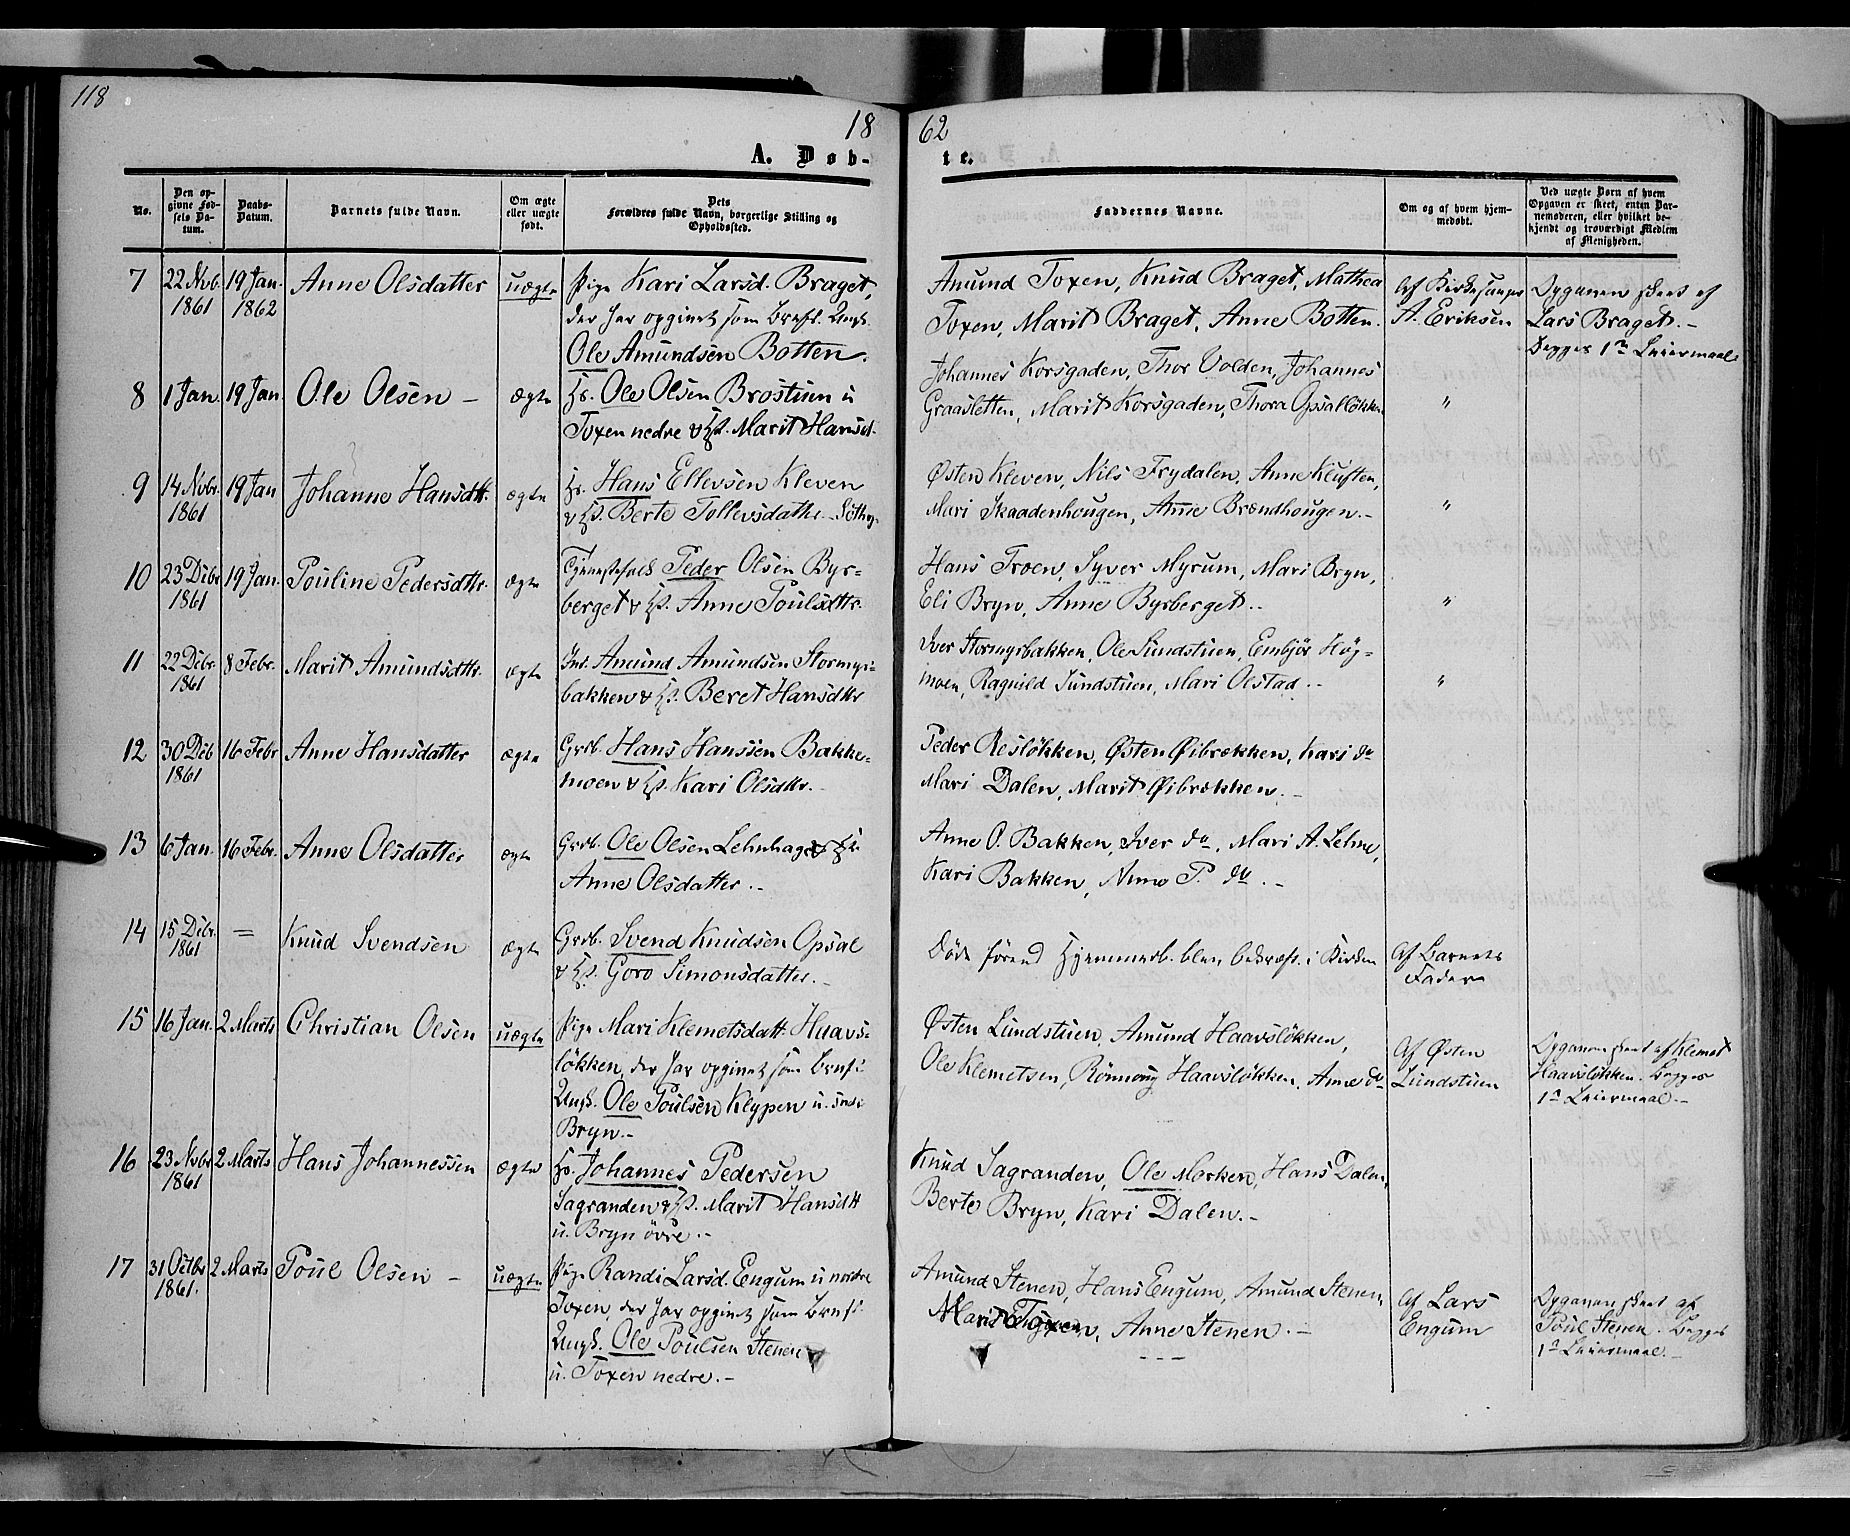 118
18 62
A. Døb-
te.
No.
Den op-
givne Fød-
sels Da-
tum.
Daabs-
Datum.
Barnets fulde Navn.
Om ægte
eller uægte
født.
Dets
Forældres fulde Navn, borgerlige Stilling og
Opholdssted.
Faddernes Navne.
Om og af hvem hjem-
medøbt.
Ved uægte Børn af hvem
Opgaven er skeet, enten Bar-
nemoderen, eller hvilket be-
kjendt og troværdigt Medlem
af Menigheden.
7 22 Nvb. 19 Jan. Anne Olsdatter uægte Pige Kari Larsd. Braget,
1861 1862 der har opgivet som Brnf.
Ole Amundsen Botten.
Amund Toxen, Knud Braget, Mathea
Toxen, Marit Braget, Anne Botten.
Af Kirkesanger
A. Eriksen
Opgaven skeet af
Lars Braget.-
Begges 1ste Leiermaal
8 1 Jan. 19 Jan. Ole Olsen - ægte Hs. Ole Olsen Brostuen u
Toxen nedre & Hst. Marit Hansd.
Johannes Korsgaden, Thor Volden, Johannes
Graasletten, Marit Korsgaden, Thora Opsalløkken
"
9 14 Nvbr. 19 Jan Johanne Hansdtr. ægte Hs. Hans Ellevsen Kleven
1861 & Hst. Berte Tollevsdatter
Østen Kleven, Nils Frydalen, Anne Kluften,
Mari Skaadenhougen, Anne Brændhougen.-
"
10 23 Dcbr 19 Jan. Pouline Pedersdtr. ægte Tjenestefolk Peder Olsen Byr-
1861 berget & Hst. Anne Poulsdtr.
Hans Troen, Syver Myrum, Mari Bryn,
Eli Bryn, Anne Byrberget.-
"
11 22 Dcbr. 8 Febr. Marit Amundsdtr. ægte Ind. Amund Amundsen Stormyr-
1861 bakken & Hst. Beret Hansdtr
Iver Stormyrbakken, Ole Sundstuen, Embjør Høg-
moen, Ragnild Sundstuen, Mari Olstad.-
"
12 30 Dcb 16 Febr Anne Hansdatter ægte Grdb. Hans Hanssen Bakke-
1861 moen & Hst. Kari Olsdtr.-
Peder Resløkken, Østen Øibrækken, Kari do
Mari Dalen, Marit Øibrækken.-
13 6 Jan. 16 Febr. Anne Olsdatter ægte Grdb. Ole Olsen Lehnhage &
Anne Olsdatter.-
Anne O. Bakken, Iver do, Mari A. Lehne,
Kari Bakken, Anne P. do.-
14 15 Dcbr. = Knud Svendsen ægte Grdb. Svend Knudsen Opsal
1861 & Hst. Goro Simonsdatter.-
Døde førend Hjemmedb. blev bekræft. i Kirken
Af Barnets
Fader
15 16 Jan. 2 Marts Christian Olsen uægte Pige Mari Klemetsdatt. Haavs-
løkken, der har opgivet som Brnf:
Ungk. Ole Poulsen Klypen u.
Bryn.-
Østen Lundstuen, Amund Haavsløkken,
Ole Klemetsen, Rønnoug Haavsløkken, Anne do
Af Østen
Lundstuen
Opgaven skeet af Klemet
Haavsløkken. Begges
1ste Leiermaal.-
16 23 Nvbr 2 Marts Hans Johannessen ægte Hs. Johannes Pedersen
1861 Sagranden & Hst. Marit Hansdtt
u. Bryn øvre.-
Knud Sagranden, Ole Morken, Hans Dalen,
Berte Bryn, Kari Dalen.-
17 31 Octbr 2 Marts Poul Olsen - uægte Pige Randi Larsd. Engum u nordre
1861. Toxen, der har opgivet som Brnf:
Ungk. Ole Poulsen Stenen
u. Toxen nedre.-
Amund Stenen, Hans Engum, Amund Stenen,
Marit Toxen, Anne Stenen.-
Af Lars
Engum
Opgaven skeet af
Poul Stenen. Begges
1ste Leiermaal.-